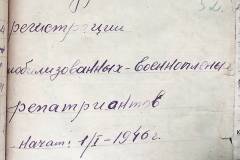 регистрации
мобилизованных-военноплены
репатриантов
начат: 1/I - 1946 г.